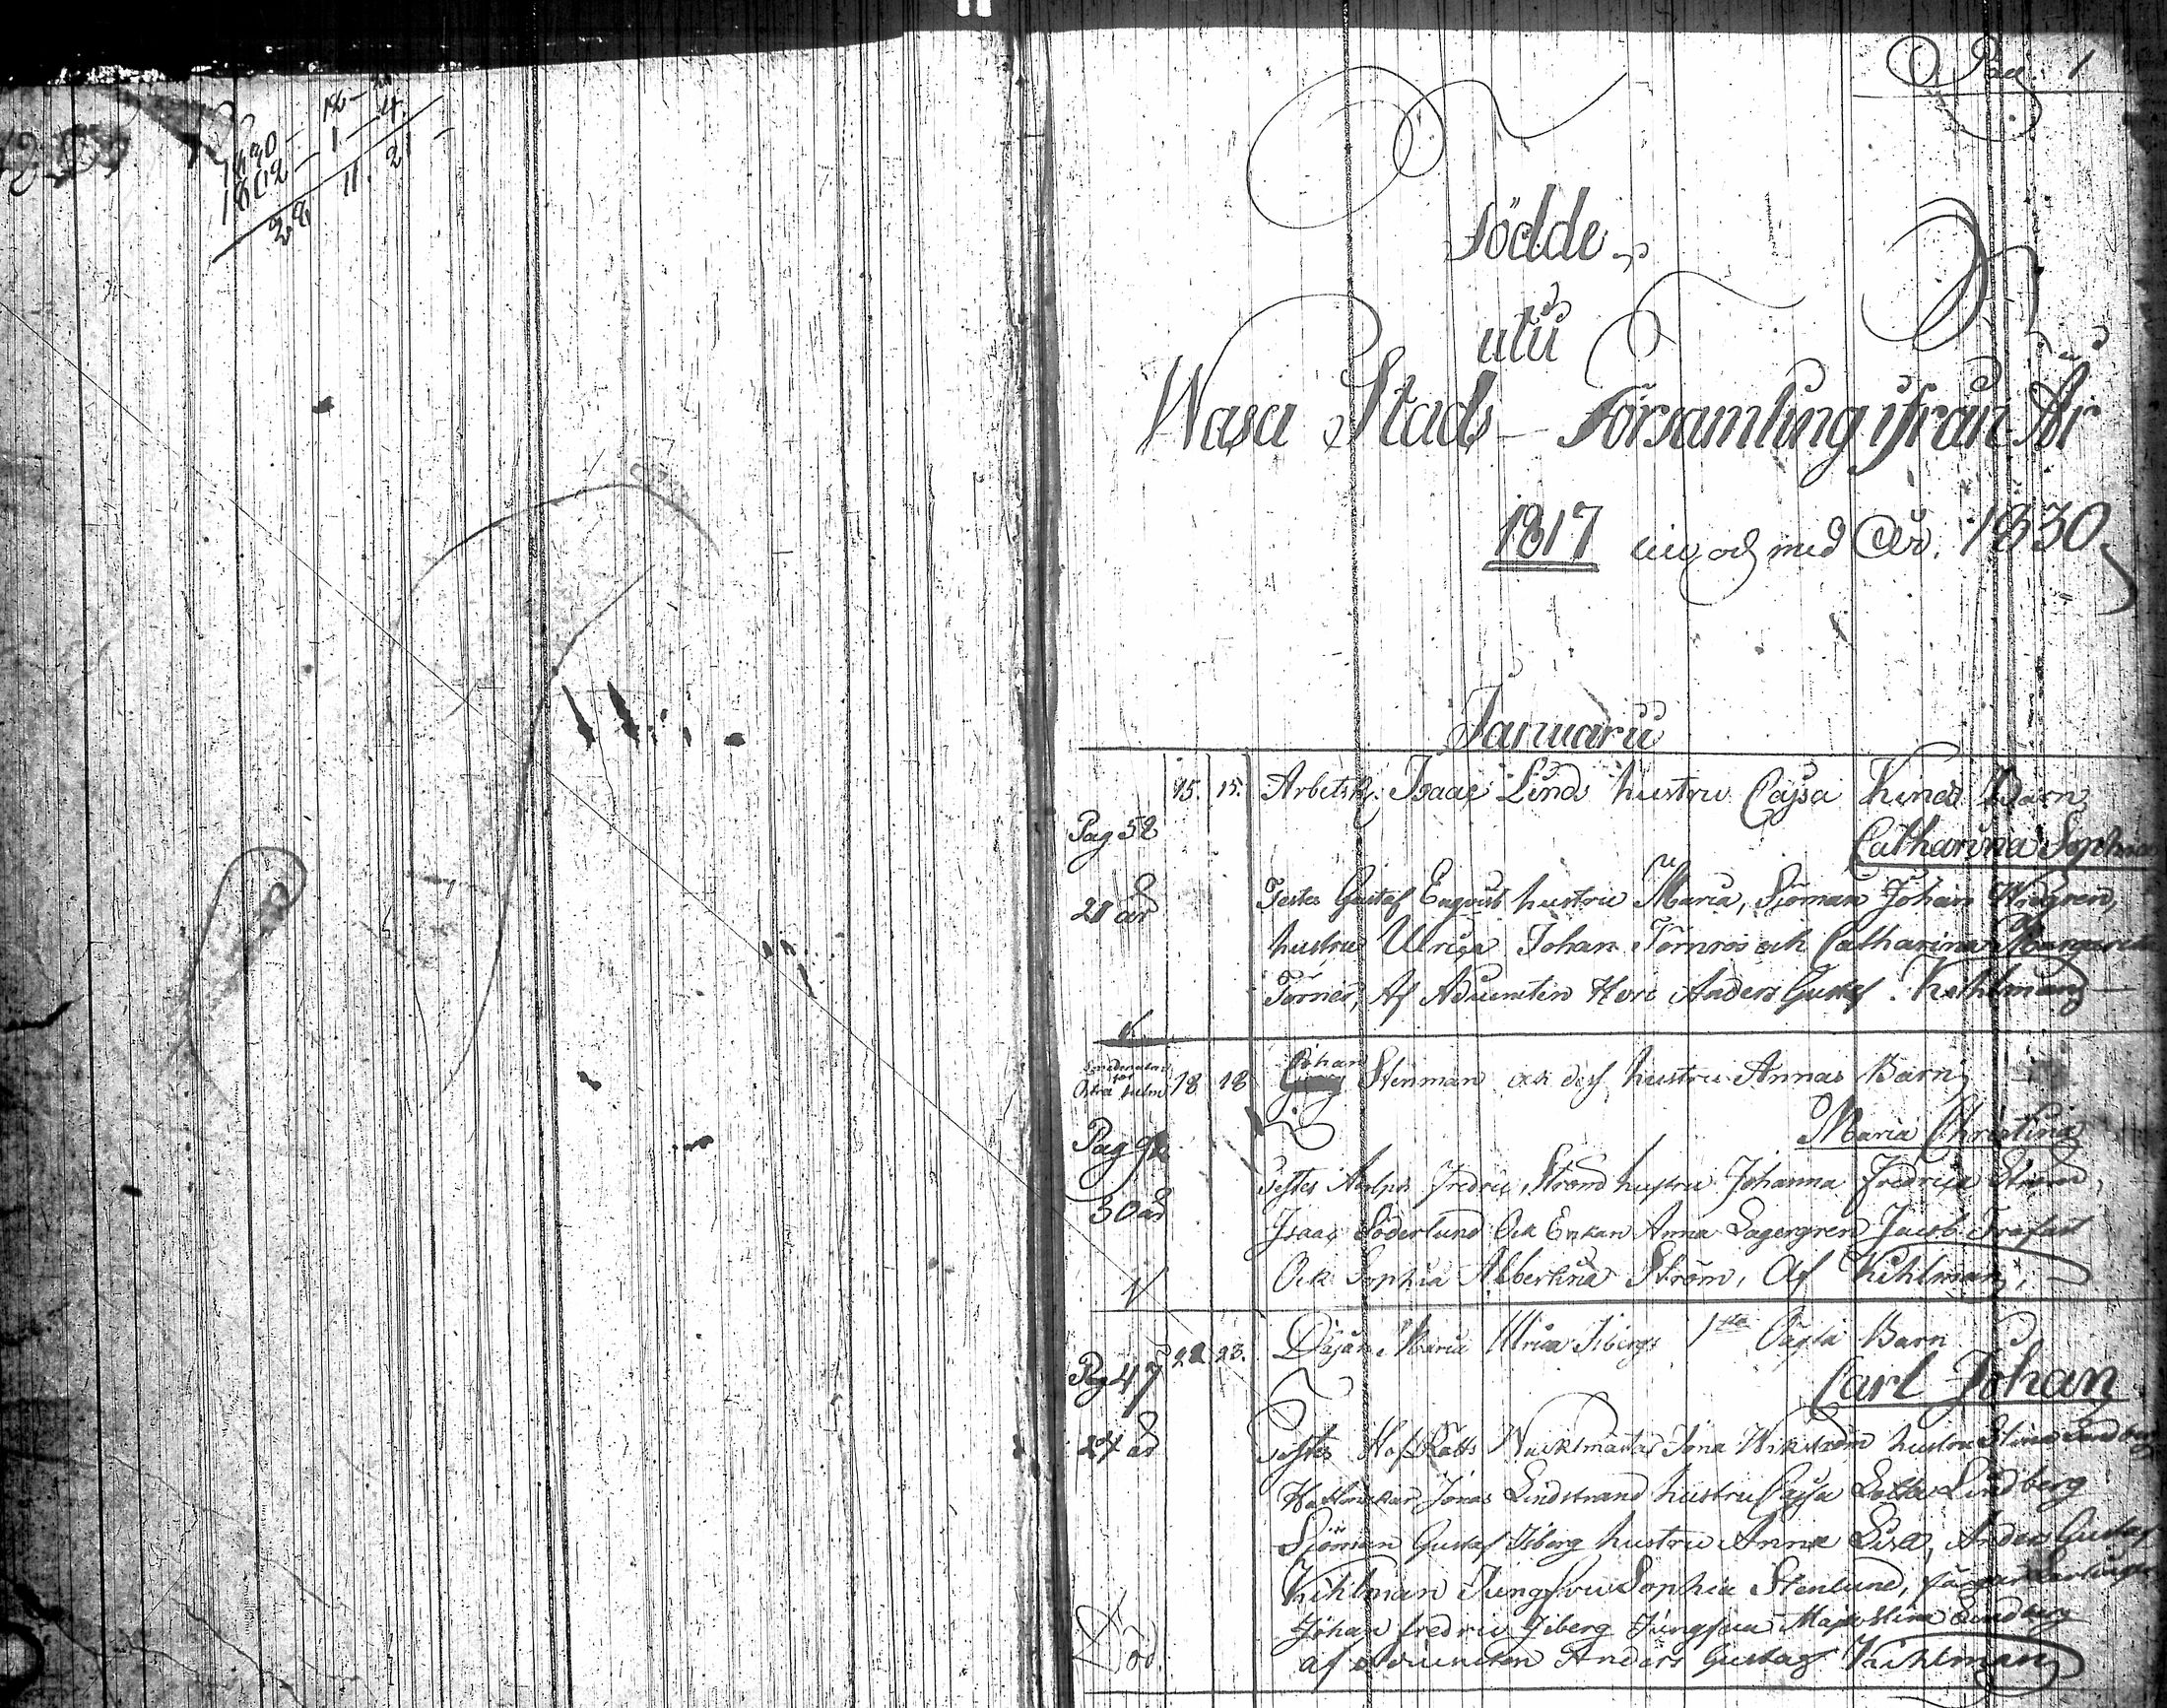 1830 – 12 – 25
1802 – 1 – 4
28 11. 21
Pag. 1
Födde
utü
Wasa Stads Församling ifrån År
1817 och med År 1830
Januarii
15. 15. Arbetsk. Isaac Linds hustru Cajsa Barn
Pag 52
Catharina Sophia
21 år
Testes Gustaf Enqvist hustru Maria, Sjöman Johan Widgren,
hustru Ulrica Johan Törnros och Catharina Margareta
Törnes, Af Adjuncten Herr Anders Gustaf Kihlman
Östra 18 18 Johan Stenman och dess hustru Annas Barn
Maria Christina
Pag
30 år
Testes Adolph Fredric Ström hustru Johanna Fredrica Ström,
Isaac Söderlund Ock Enkan Anna Lagergren Jacob
Ock Sophia Albertina Ström, Af Kihlman,
Pag 47 22 23. Pigan Maria Ulrica Sibergs 1sta Oägta Barn
Carl Johan
24 år
Testes HofRätts Wacktmästar Jona Wikström hustru Stina
Jonas Lindstrand hustru Cajsa Lotta Lindberg
Sjöman Gustaf Siberg hustru Anna Lisa, Anders Gustaf
Kihlman Jungfru Sophia Stenlund,
Johan Fredric Siberg Jungfru Maja Stina Lindberg
af Adjuncten Anders Gustaf Kihlman
Död